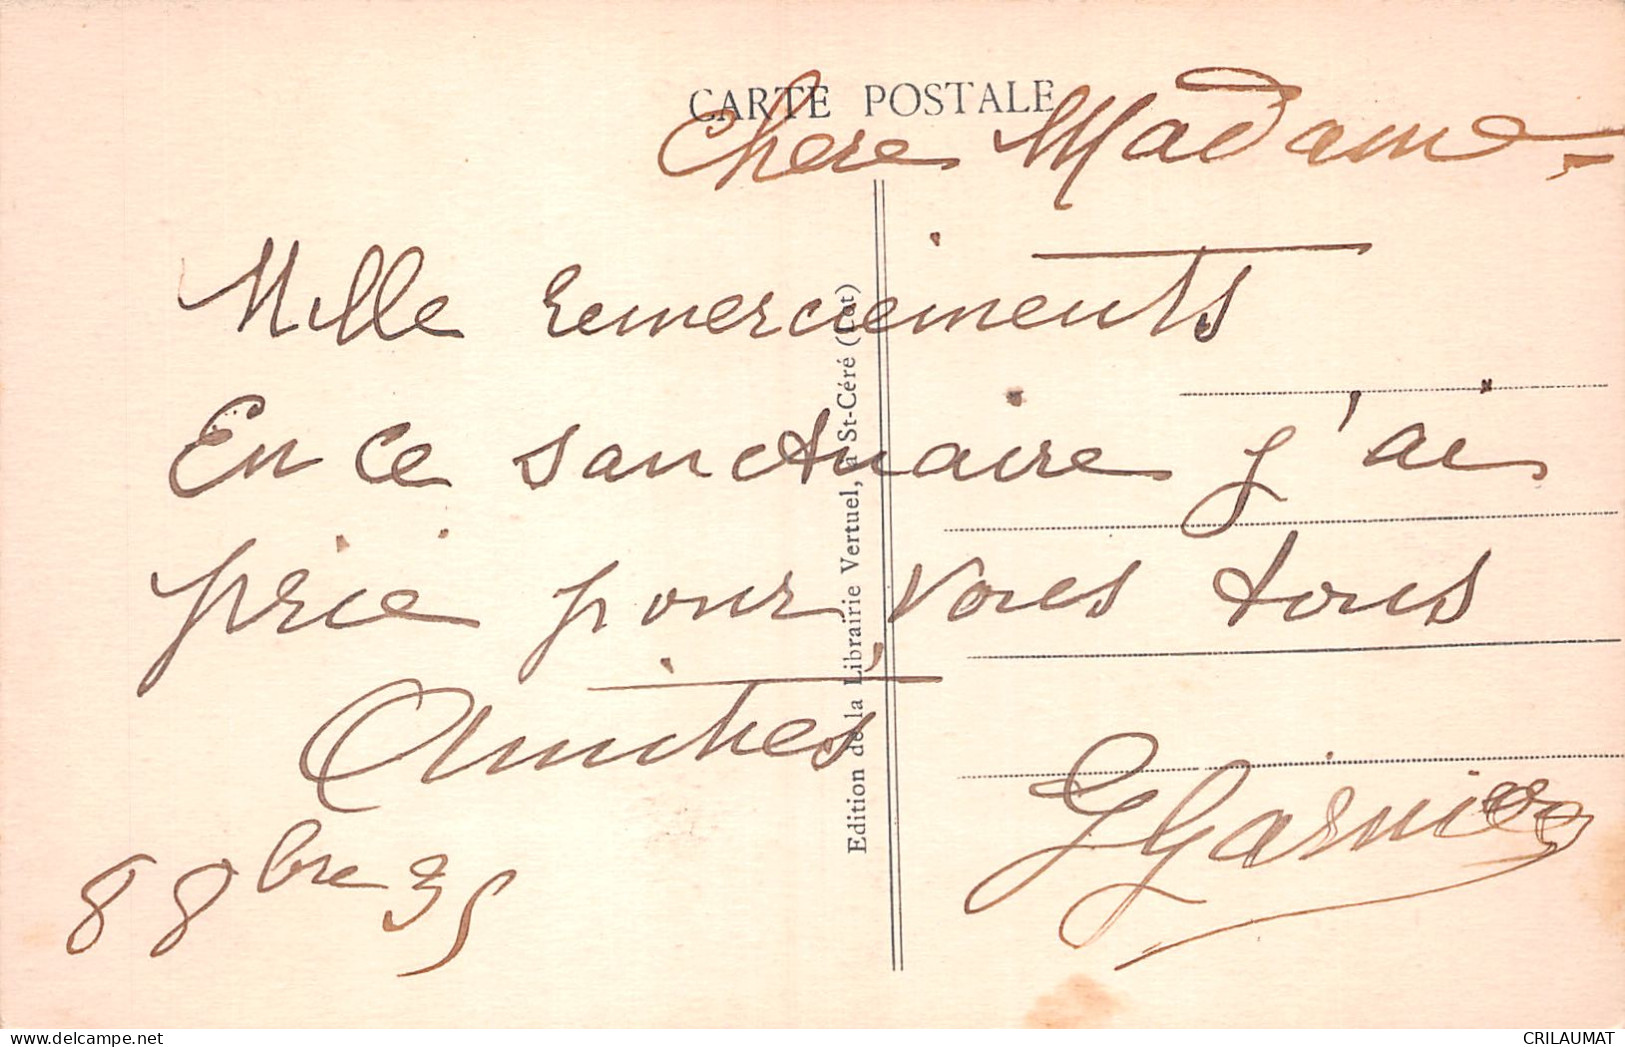 CARTE POSTALE
Chere Madame
Mille remerciements
En ce sanctuaire j'ai
prié pour vous tous
Amities
G Garnier
8 8bre 35
Edition de la Librairie Vertuel, à St-Céré (Lot)
CRILAUMAT